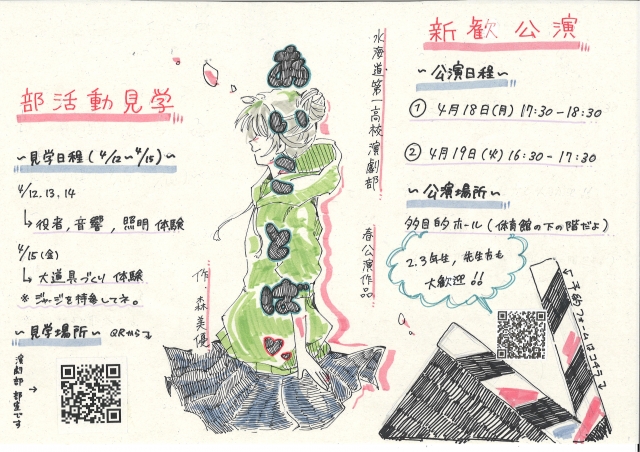 新歓公演
~公演日程~
① 4月18日(月) 17:30-18:30
② 4月19日(火) 16:30-17:30
~公演場所~
多目的ホール(体育館の下の階だよ)
2.3年生,先生方も
大歓迎!!
←予約フォームはコチラ↓
水海道第一高校演劇部
春公演作品
作:森美優
部活動見学
~見学日程(4/12~4/15)~
4/12.13.14
↳役者,音響,照明体験
4/15(金)
↳大道具づくり体験
※ジャージを持参してネ。
~見学場所~ QRから↴
演劇部部室です
→